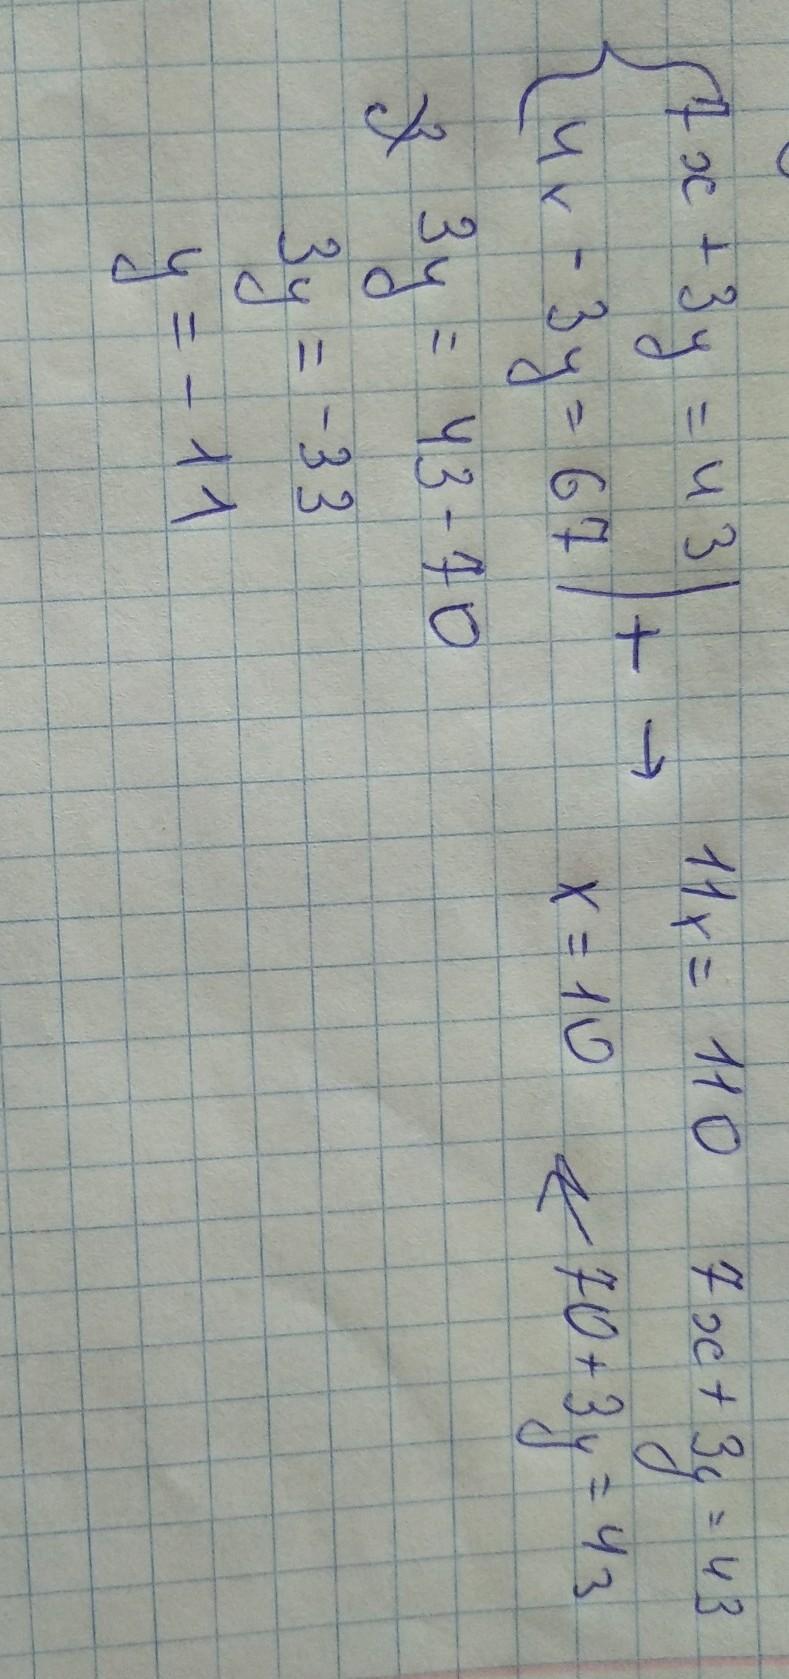 { 7x + 3y = 43 | + → 11x = 110 7x + 3y = 43
4x - 3y = 67 | x = 10 ↙ 70 + 3y = 43
3y = 43 - 70
3y = -33
y = -11